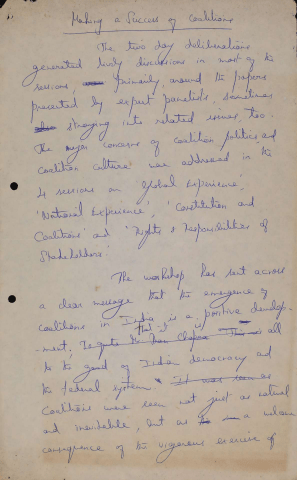 Making a Success of Coalitions
The two day deliberations
generated lively discussions in most of the
sessions, primarily around the papers
presented by expert panelists, sometimes
straying into related issues, too.
The major concerns of coalition politics and
coalition culture were addressed in the
4 sessions on 'Global Experience',
'National Experience', 'Constitution and
Coalitions' and 'Rights & Responsibilities of
Stakeholders'.
The workshop has sent across
a clear message that the emergence of
coalitions in India is a positive develop-
ment, that it is all
to the good of Indian democracy and
the federal system. It was seen as
Coalitions were seen not just as natural
and inevitable, but as a
consequence of the vigorous exercise of